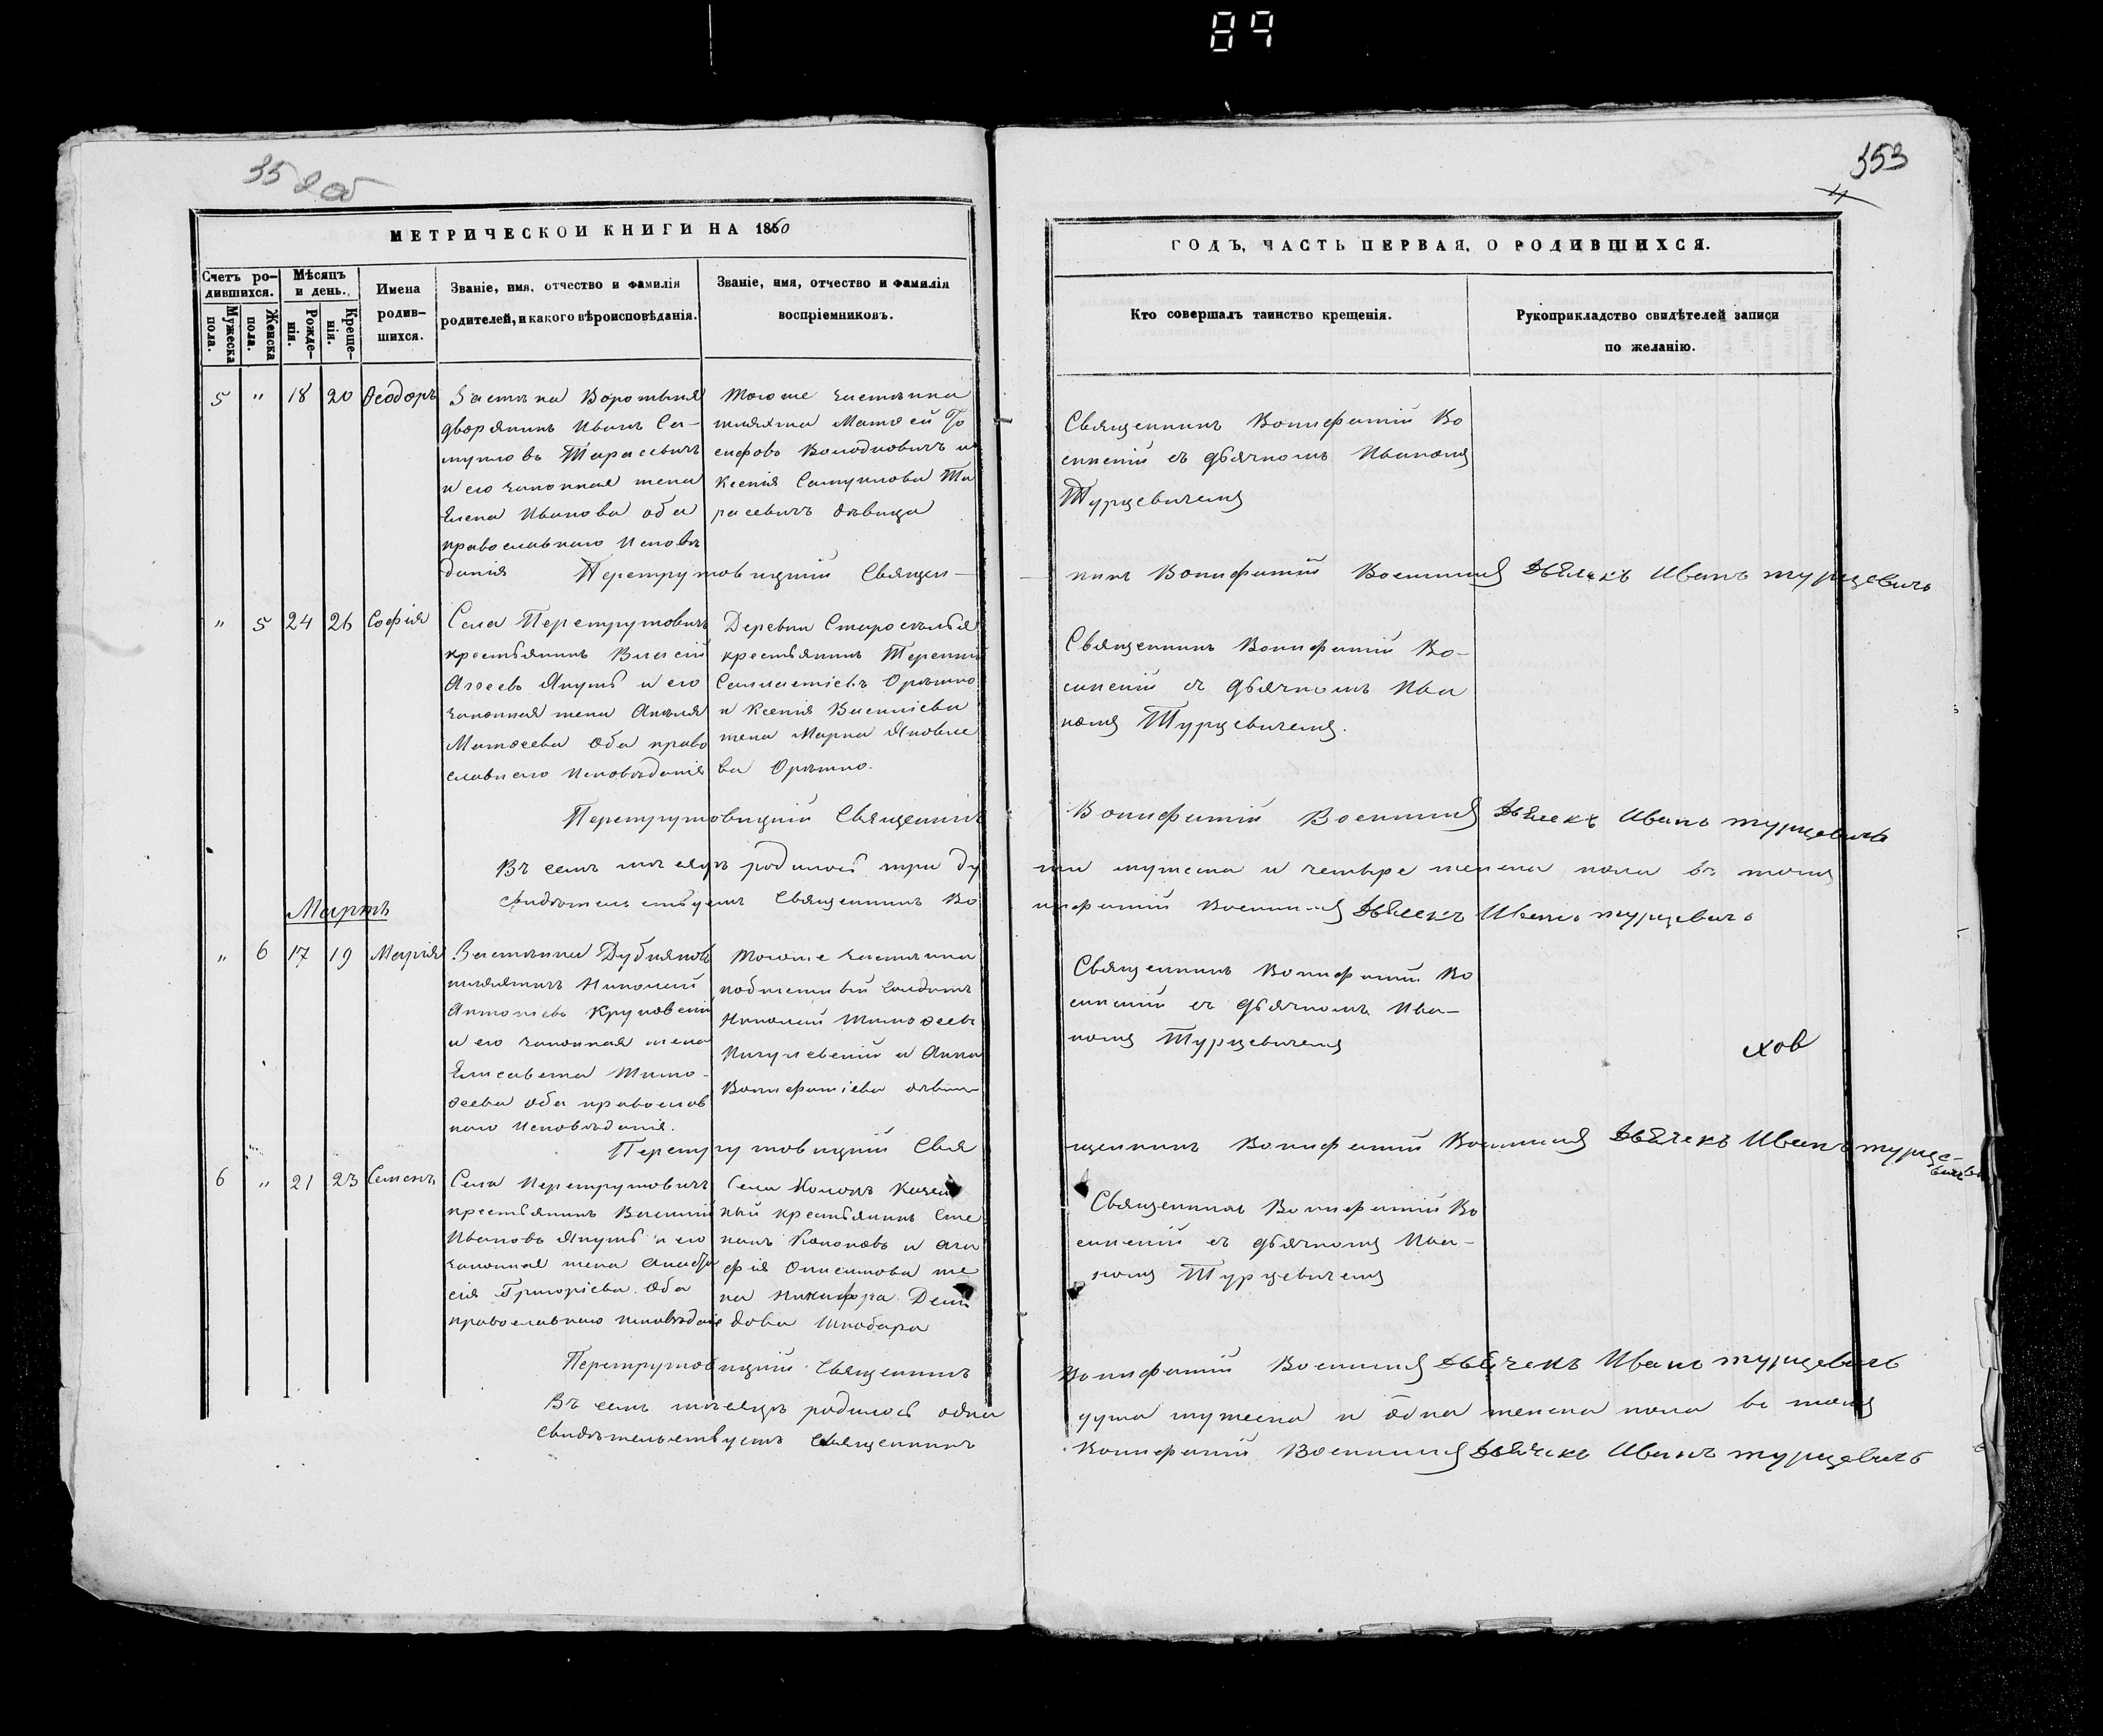 89
353
МЕТРИЧЕСКОЙ КНИГИ НА 1860
ГОДЪ, ЧАСТЬ ПЕРВАЯ, О РОДИВШИХСЯ.
Счетъ ро-
дившихся.
Мужеска
пола.
Женска
пола.
Мѣсяцъ
и день.
Рожде-
нія.
Креще-
нія.
Имена
родив-
шихся.
Званіе, имя, отчество и фамилія
родителей, и какого вѣроисповѣданія.
Званіе, имя, отчество и фамилія
воспріемниковъ.
Кто совершалъ таинство крещенія.
Рукоприкладство свидѣтелей записи
по желанію.
5 " 18 20 Ѳеодоръ
Застѣнка Воротыня
дворянинъ Иванъ Са-
муиловъ Тарасевичъ
и его законная жена
Елена Иванова оба
православнаго исповѣ
данія
Тогоже застѣнка
шляхта Матѳей Іо
сифовъ Володковичъ и
Ксенія Самуилова Та
расевичъ дѣвица
Священникъ Вонифатій Во
с дьячкомъ Иваномъ
Турцевичемъ
Перетрутовицкій Священ-
никъ Вонифатій Дьячекъ Иванъ Турцевичъ
" 5 24 26 Софія
Села Перетрутовичъ
крестьянинъ Власій
Аггеевъ Якутъ и его
законная жена
Матѳеева оба право
славнаго исповѣданія
Деревни Староселья
крестьянинъ Терентій
и Ксенія Василіева
жена Марка Яковле
ва
Священникъ Вонифатій Во-
съ дьячкомъ Ива
номъ Турцевичемъ.
Перетрутовицкій Священникъ
Вонифатій Дьячекъ Иванъ Турцевичъ
Въ семъ мѣсяцѣ родилось три ду
ши мужеска и четыре женска пола въ томъ
свидѣтельствуетъ Священникъ Во
нифатій Дьячекъ Иванъ Турцевичъ
Мартъ
" 6 17 19 Марія
Застѣнка Дубняковъ
шляхтичъ Николай
Антоніевъ Круковскій
и его законная жена
Елисавета Тимо-
ѳеева оба православ
наго исповѣданія.
Тогоже застѣнка
солдатъ
Николай Тимоѳеевъ
и Анна
Вонифатіева дѣвица
Священникъ Вонифатій Во
съ дьячкомъ Ива-
номъ Турцевичемъ
хов
Перетрутовицкій Свя
щенникъ Вонифатій Дьячекъ Иванъ Турце-
вичъ
6 " 21 23 Семенъ
Села Перетрутовичъ
крестьянинъ Василій
Ивановъ Якутъ и его
законная жена Анаста
сія Григоріева оба
православнаго исповѣданія
Села
крестьянинъ Сте
панъ Кононовъ и Ага
фія Онисимова же
на Никифора Деми
дова
Священникъ Вонифатій Во
съ дьячкомъ Ива-
номъ Турцевичемъ
Перетрутовицкій Священникъ
Вонифатій Дьячекъ Иванъ Турцевичъ
Въ семъ мѣсяцѣ родилось одна
душа мужеска и одна женска пола въ томъ
свидѣтельствуетъ Священникъ
Вонифатій Дьячекъ Иванъ Турцевичъ